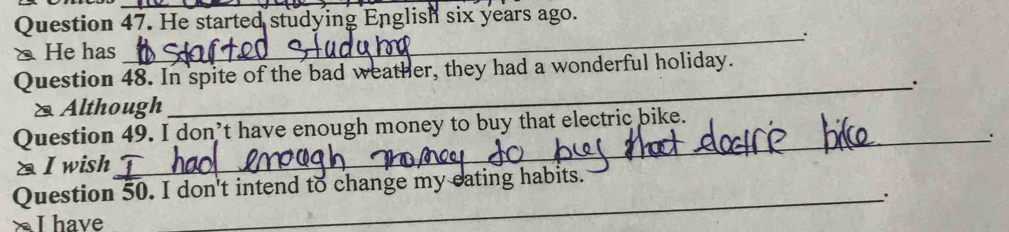 Question 47. He started studying English six years ago.
He has started studying .
Question 48. In spite of the bad weather, they had a wonderful holiday.
Although .
Question 49. I don't have enough money to buy that electric bike.
I wish I had enough money to buy that bike .
Question 50. I don't intend to change my eating habits.
I have .